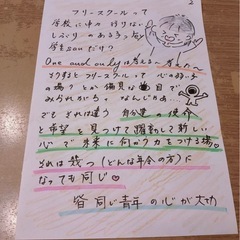 2
フリースクールって
学校に中々行けない
学生さんだけ?
One and only は考える〜
そうするとフリースクールって 心の弱い子
の場? とか偏見な目で
みられがち
でもそれは違う 自分達の使命
と希望を見つけて躍動して新しい
心で未来に向かう力をつける場
それは幾つ(どんな年令の方)に
なっても同じ
皆同じ青年の心が大切